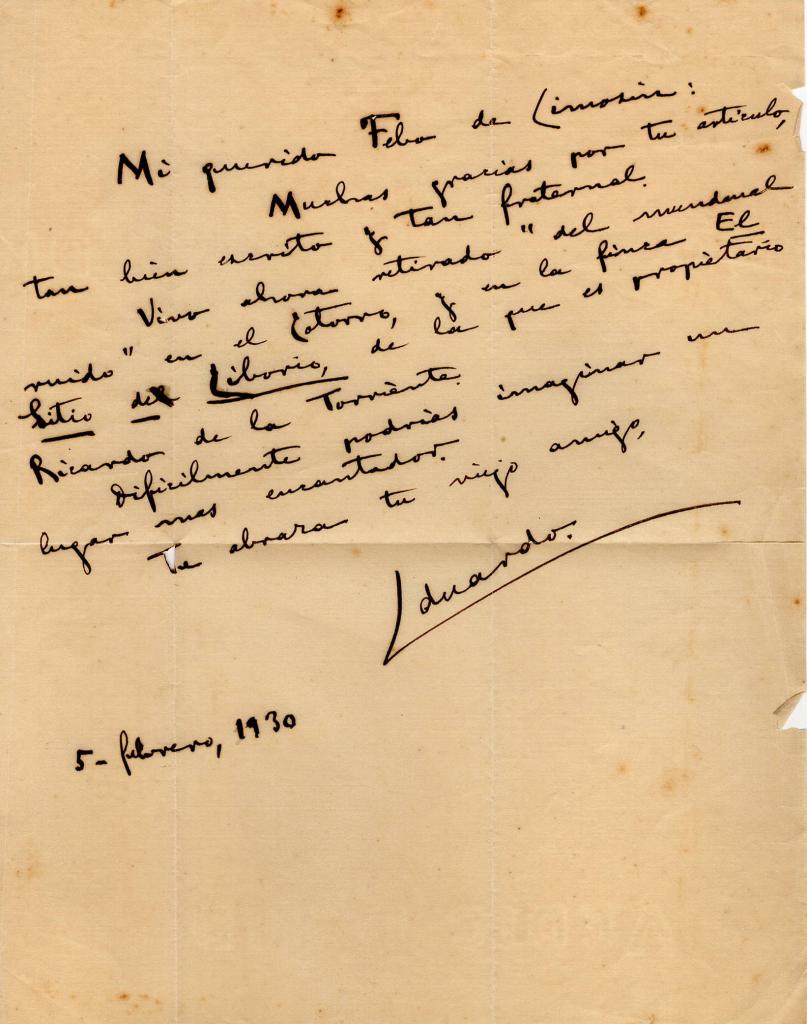 Mi querido Febo de Limosin:
Muchas gracias por tu artículo,
tan bien escrito y tan fraternal.
Vivo ahora retirado "del mundanal
ruido" en el Cotorro, y en la finca El
Sitio de Liborio, de la que es propietario
Ricardo de la Torriente.
Dificilmente podrías imaginar un
lugar mas encantador.
Te abraza tu viejo amigo,
Eduardo.
5- febrero, 1930